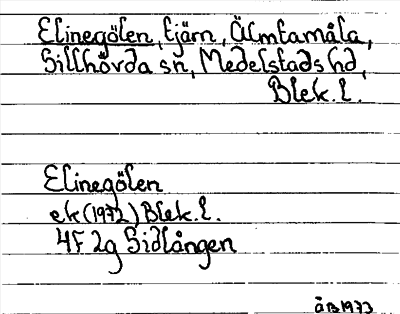 Elinegölen, tjärn, Älmtamåla,
Sillhövda sn, Medelstads hd,
Blek. l.
Elinegölen
ek (1972) Blek. l.
4F 2g Sidlången
ÅB 1973